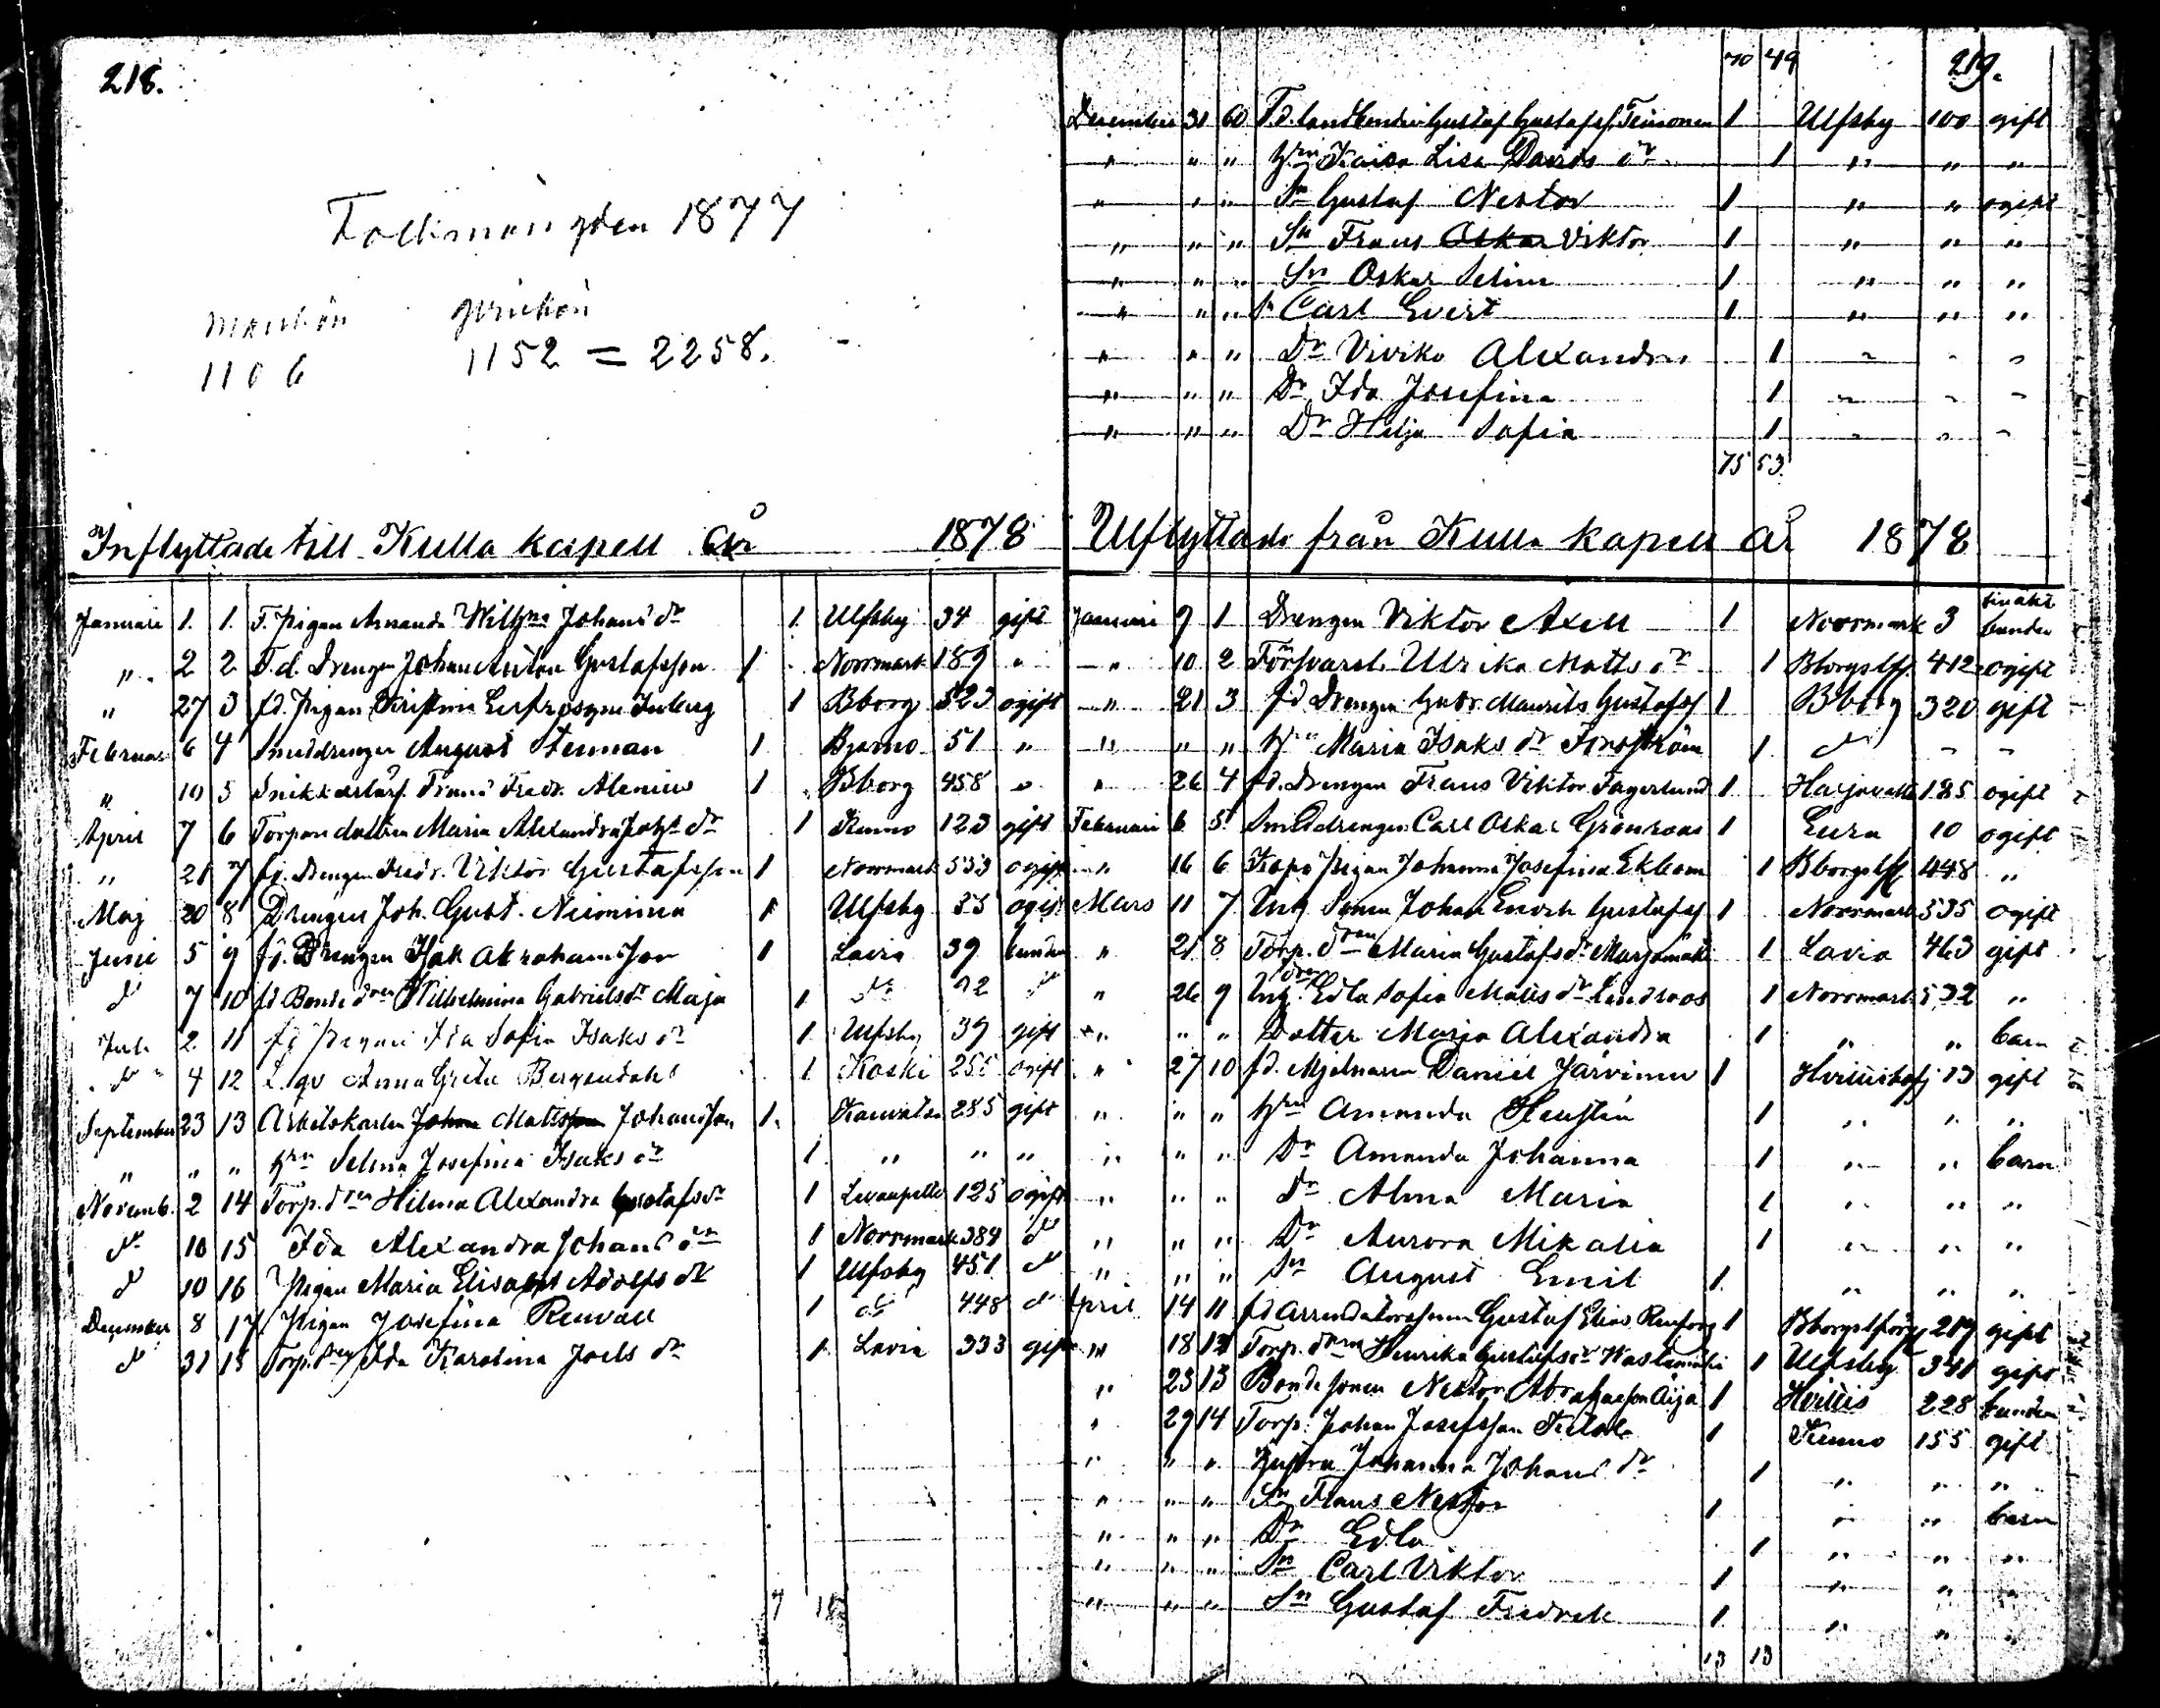 218.
Folkmängden 1877
mankön qvinkön
1106 1152 = 2258.
Inflyttade till Kulla kapell år 1878
Januari 1. 1. F. Pigan Amanda Wilhna Johans dr 1. Ulfsby 34 gift
" 2 2 F.d. Drengen Johan Anton Gustafsson 1 Norrmark 189 "
" 27 3 fd. Pigan Kristina Eufrosyne Inberg 1 Bborg 523 ogift
Februari 6 4 Smeddrengen August Stenman 1 Bjerno 51 "
" 10 5 Snikkarelärl. Frans Fredr. Alenius 1 Bborg 458 "
April 7 6 Torparedottren Maria Alexandra Johs dr 1 Kumo 123 gift
" 21 7 fd. Drengen Fredr. Viktor Gustafsson 1 Norrmark 533 ogift
Maj 20 8 Drengen Joh. Gust. Nieminen 1 Ulfsby 33 ogift
Juni 5 9 fd. Drengen Isak Abrahamsson 1 Lavia 39 bunden
d 7 10 fd Bonde dren Wilhelmina Gabrielsdr Maja 1 dr 92 d
Juli 2 11 fd Pigan Ida Sofia Isaks dr 1 Ulfsby 39 gift
d 4 12 Anna Greta Bergendahl 1 Koski 255 ogift
September 23 13 Arbetskarlen Johan Mattsson Johansson 1. 285 gift
" " " Hn Selma Josefina Isaks dr 1 " " "
Novemb. 2 14 Torp. dren Hilma Alexandra Gustafsdr 1 125 ogift
dr 10 15 Ida Alexandra Johans dr 1 Norrmark 384 d
d 10 16 Pigan Maria Elisabet Adolfs dr 1 Ulfsby 451 d
December 8 17 Pigan Josefina Renvall 1 dr 448 d
d 31 18 Torp. dren Ida Karolina Joels dr 1 Lavia 333 gift
7 18
70 49 219.
December 31 60 F.d. landbonden Gustaf Gustafss. Teinonen 1 Ulfsby 100 gift
" " " Hn Kaisa Lisa Davids dr 1 " " "
" " " Sn Gustaf Nestor 1 " " ogift
" " " Sn Frans Oskar Viktor 1 " " "
" " " Sn Oskar Selim 1 " " "
" " " Sn Carl Evert 1 " " "
" " " Dr Viviko Alexandra 1 " " "
" " " Dr Ida Josefina 1 " " "
" " " Dr Hilja Sofia 1 " " "
75 53
Utflyttade från Kulla kapell år 1878
Januari 9 1 Drengen Viktor Axell 1 Norrmark 3 bunden
" 10 2 Försvarsl. Ulrika Matts dr 1 Bborgs lfs. 412 ogift
" 21 3 fd Drengen Gust. Maurits Gustafss 1 Bborg 320 gift
" " " Hn Maria Isaks dr Forsström 1 d " "
" 26 4 fd. Drengen Frans Viktor Fagerlund 1 Harjavalta 185 ogift
Februari 6 5 Smeddrengen Carl Oskar Grönroos 1 Eura 10 ogift
" 16 6 Pigan Johanna Josefina Ekbom 1 Bborgs lfs 448 "
Mars 11 7 Ing. Sonen Johan Enoch Gustafss 1 Norrmark 535 ogift
" 21 8 Torp. dren Maria Gustafs dr Marjamäki 1 Lavia 463 gift
" 26 9 Ing. dren Edla Sofia Matts dr Lindroos 1 Norrmark 532 "
" " " Dotter Maria Alexandra 1 " " barn
" 27 10 fd. Mjölnaren Daniel Järvinen 1 Hvittisbofj 13 gift
" " " Hn Amanda Henstén 1 " " "
" " " Dr Amanda Johanna 1 " " barn
" " " dr Alma Maria 1 " " "
" " " Dr Aurora Mikalia 1 " " "
" " " Sn August Emil 1 " " "
April 14 11 fd Arrendatorssonen Gustaf Elias Renfors 1 Bborgs lförs. 219 gift
" 18 12 Torp. dren Henrika Gustafs dr Wastamäki 1 Ulfsby 341 gift
" 23 13 Bonde sonen Nestor Abrahamsson Äijä 1 Hvittis 228 bunden
" 29 14 Torp. Johan Josefsson 1 Kumo 155 gift
" " " Hustru Johanna Johans dr 1 " " "
" " " Sn Frans Nestor 1 " " barn
" " " Dr Edla 1 " " "
" " " Sn Carl Viktor 1 " " "
" " " Sn Gustaf Fredrik 1 " " "
13 13